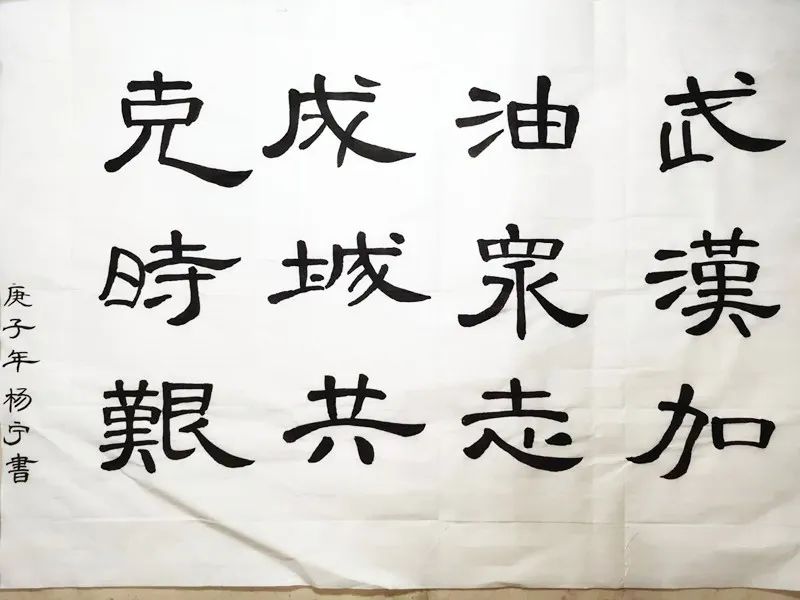 武漢加
油眾志
成城共
克時艱
庚子年杨宁書